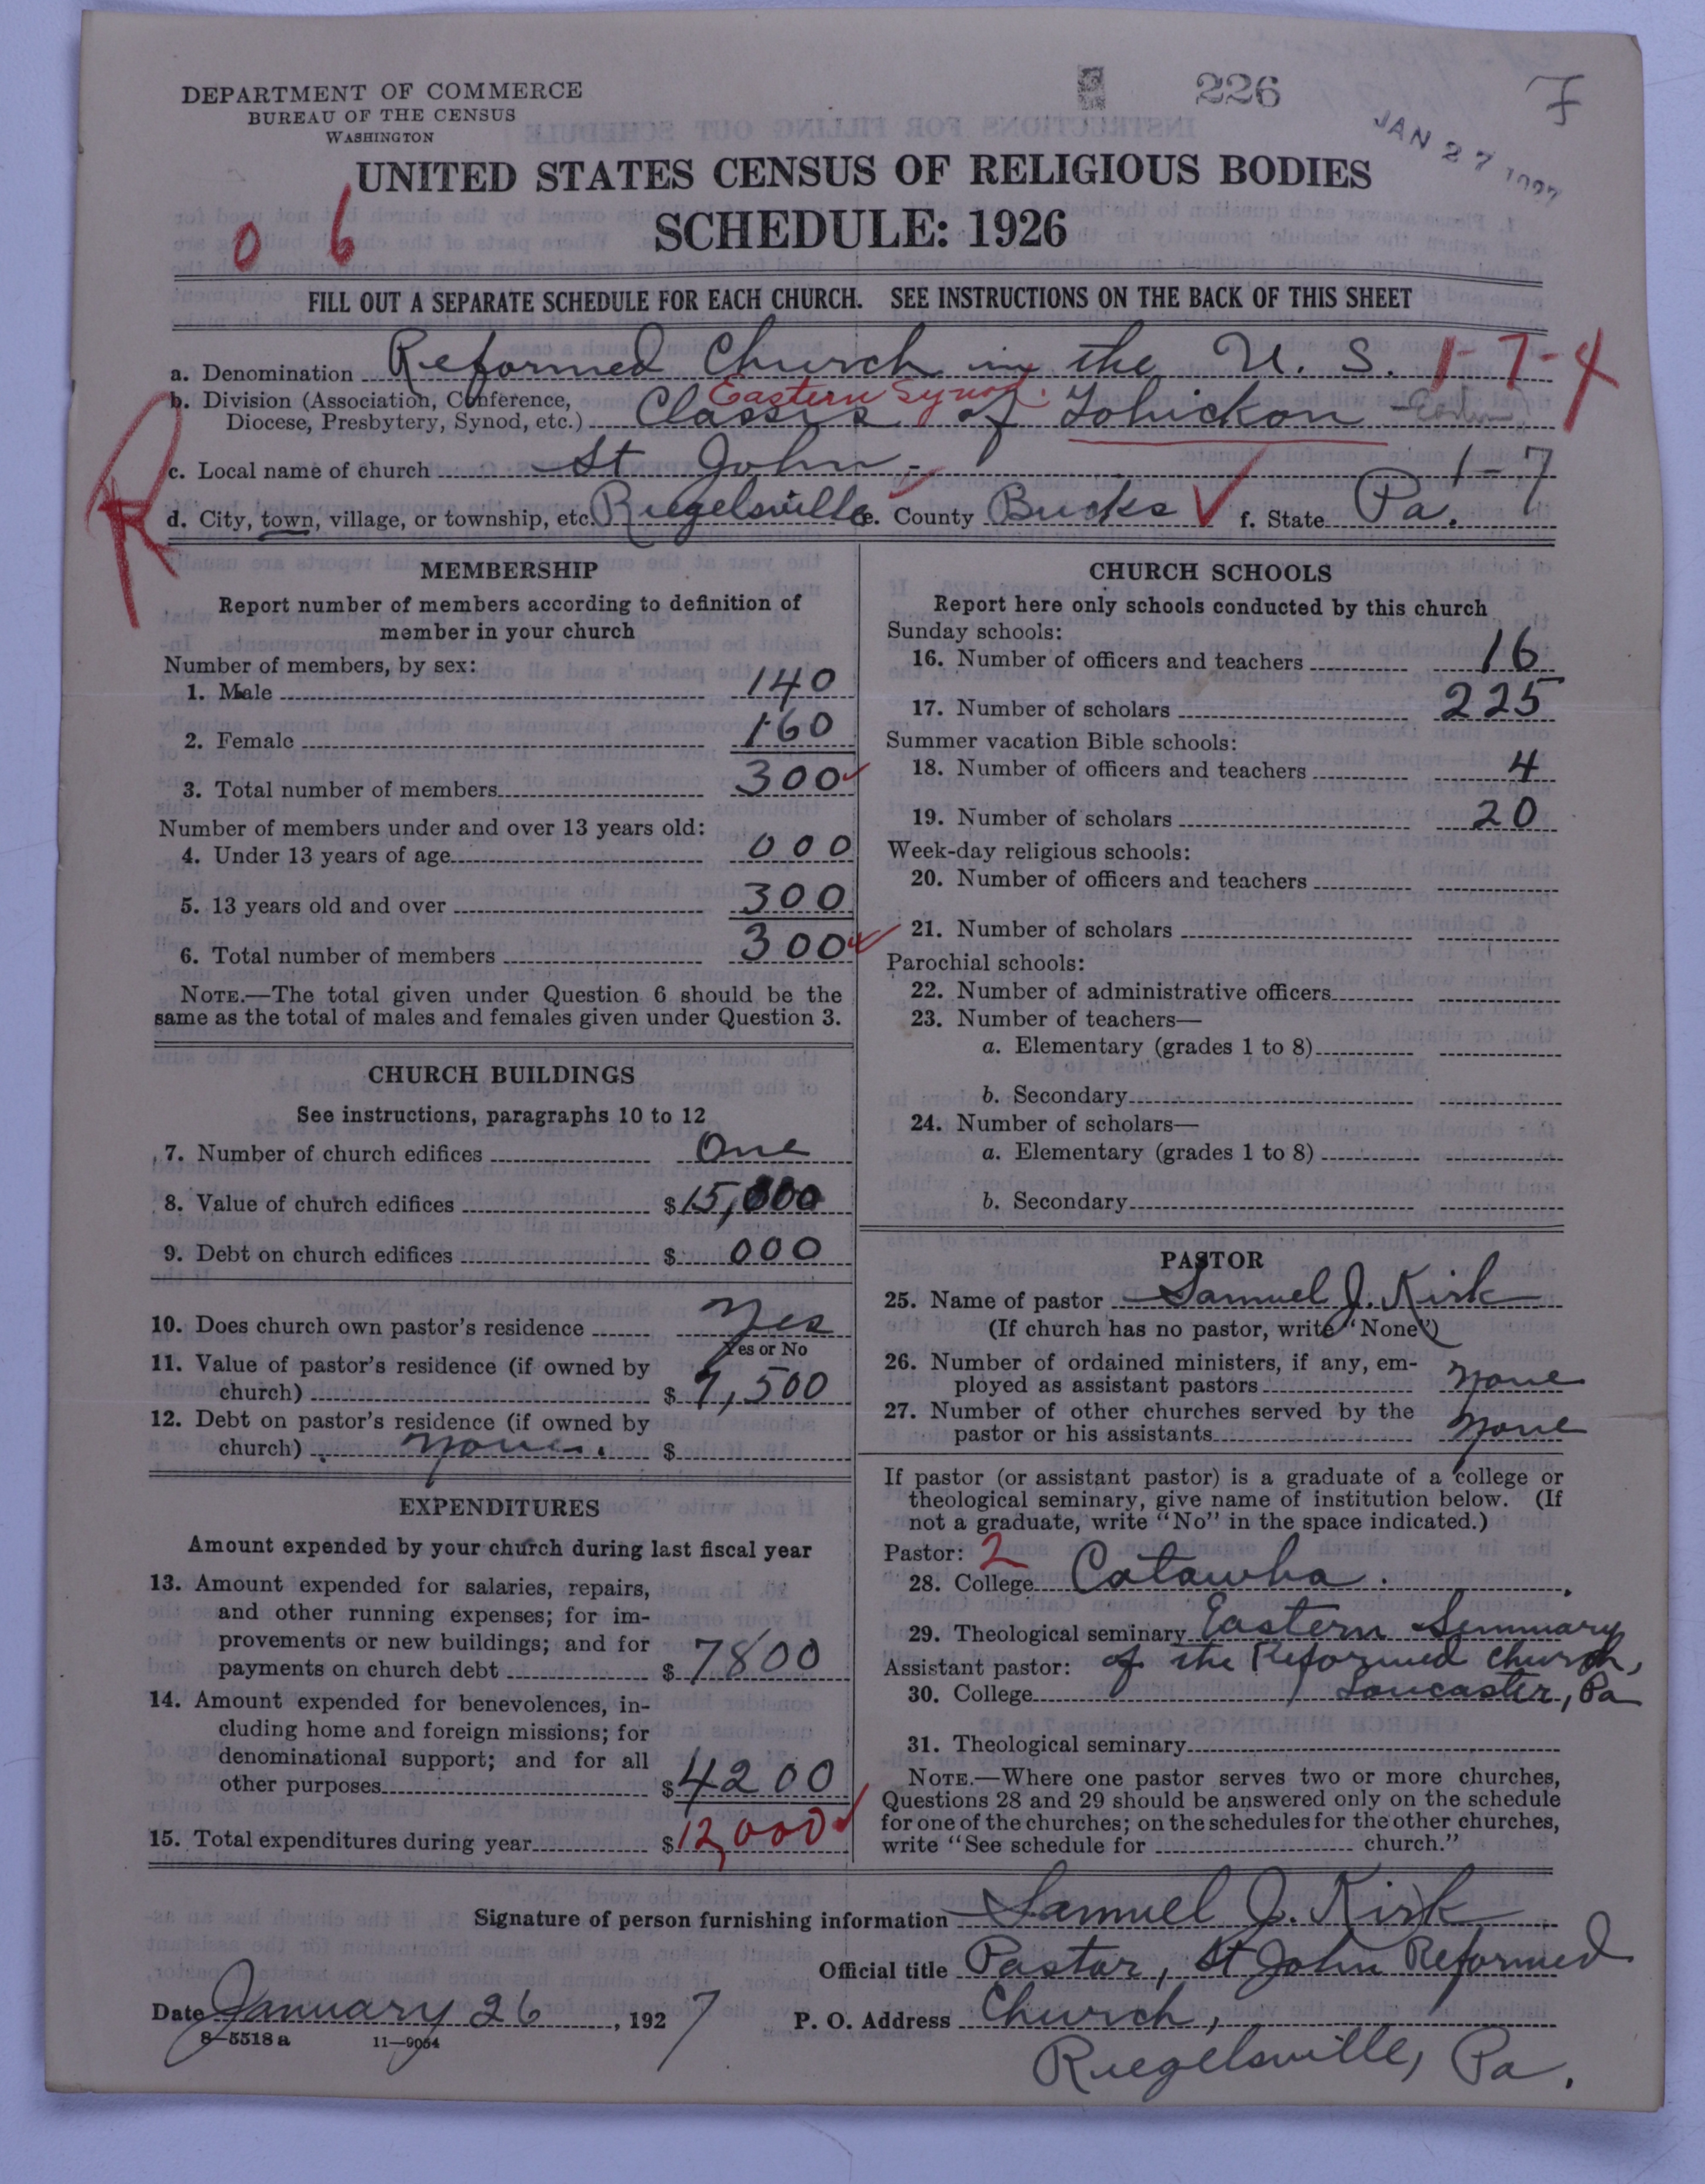 DEPARTMENT OF COMMERCE
BUREAU OF THE CENSUS
WASHINGTON
226
F
JAN 27 1927
UNITED STATES CENSUS OF RELIGIOUS BODIES
SCHEDULE: 1926
0 6
FILL OUT A SEPARATE SCHEDULE FOR EACH CHURCH. SEE INSTRUCTIONS ON THE BACK OF THIS SHEET
a. Denomination Reformed Church in the U. S. 1-7-4
Eastern Synod.
b. Division (Association, Conference,
Diocese, Presbytery, Synod, etc.) Classis of Tohickon
R
c. Local name of church St John - 1-7
d. City, town, village, or township, etc. Riegelsville e. County Bucks f. State Pa.
MEMBERSHIP
Report number of members according to definition of
member in your church
Number of members, by sex:
1. Male 140
2. Female 160
3. Total number of members 300
Number of members under and over 13 years old:
4. Under 13 years of age 000
5. 13 years old and over 300
6. Total number of members 300
NOTE.—The total given under Question 6 should be the
same as the total of males and females given under Question 3.
CHURCH BUILDINGS
See instructions, paragraphs 10 to 12
7. Number of church edifices One
8. Value of church edifices $15,000
9. Debt on church edifices $ 000
10. Does church own pastor's residence Yes
Yes or No
11. Value of pastor's residence (if owned by
church) $ 7,500
12. Debt on pastor's residence (if owned by
church) None. $
EXPENDITURES
Amount expended by your church during last fiscal year
13. Amount expended for salaries, repairs,
and other running expenses; for im-
provements or new buildings; and for
payments on church debt $ 7800
14. Amount expended for benevolences, in-
cluding home and foreign missions; for
denominational support; and for all
other purposes $ 4200
15. Total expenditures during year $ 12,000
CHURCH SCHOOLS
Report here only schools conducted by this church
Sunday schools:
16. Number of officers and teachers 16
17. Number of scholars 225
Summer vacation Bible schools:
18. Number of officers and teachers 4
19. Number of scholars 20
Week-day religious schools:
20. Number of officers and teachers
21. Number of scholars
Parochial schools:
22. Number of administrative officers
23. Number of teachers—
a. Elementary (grades 1 to 8)
b. Secondary
24. Number of scholars—
a. Elementary (grades 1 to 8)
b. Secondary
PASTOR
25. Name of pastor Samuel J. Kirk
(If church has no pastor, write "None")
26. Number of ordained ministers, if any, em-
ployed as assistant pastors None
27. Number of other churches served by the
pastor or his assistants None
If pastor (or assistant pastor) is a graduate of a college or
theological seminary, give name of institution below. (If
not a graduate, write "No" in the space indicated.)
Pastor: 2
28. College Catawba.
29. Theological seminary Eastern Seminary
Assistant pastor: of the Reformed Church,
30. College Lancaster, Pa
31. Theological seminary
NOTE.—Where one pastor serves two or more churches,
Questions 28 and 29 should be answered only on the schedule
for one of the churches; on the schedules for the other churches,
write "See schedule for church."
Signature of person furnishing information Samuel J. Kirk
Official title Pastor, St John Reformed
Date January 26, 1927 P. O. Address Church,
8-5518 a 11-9064
Riegelsville, Pa.